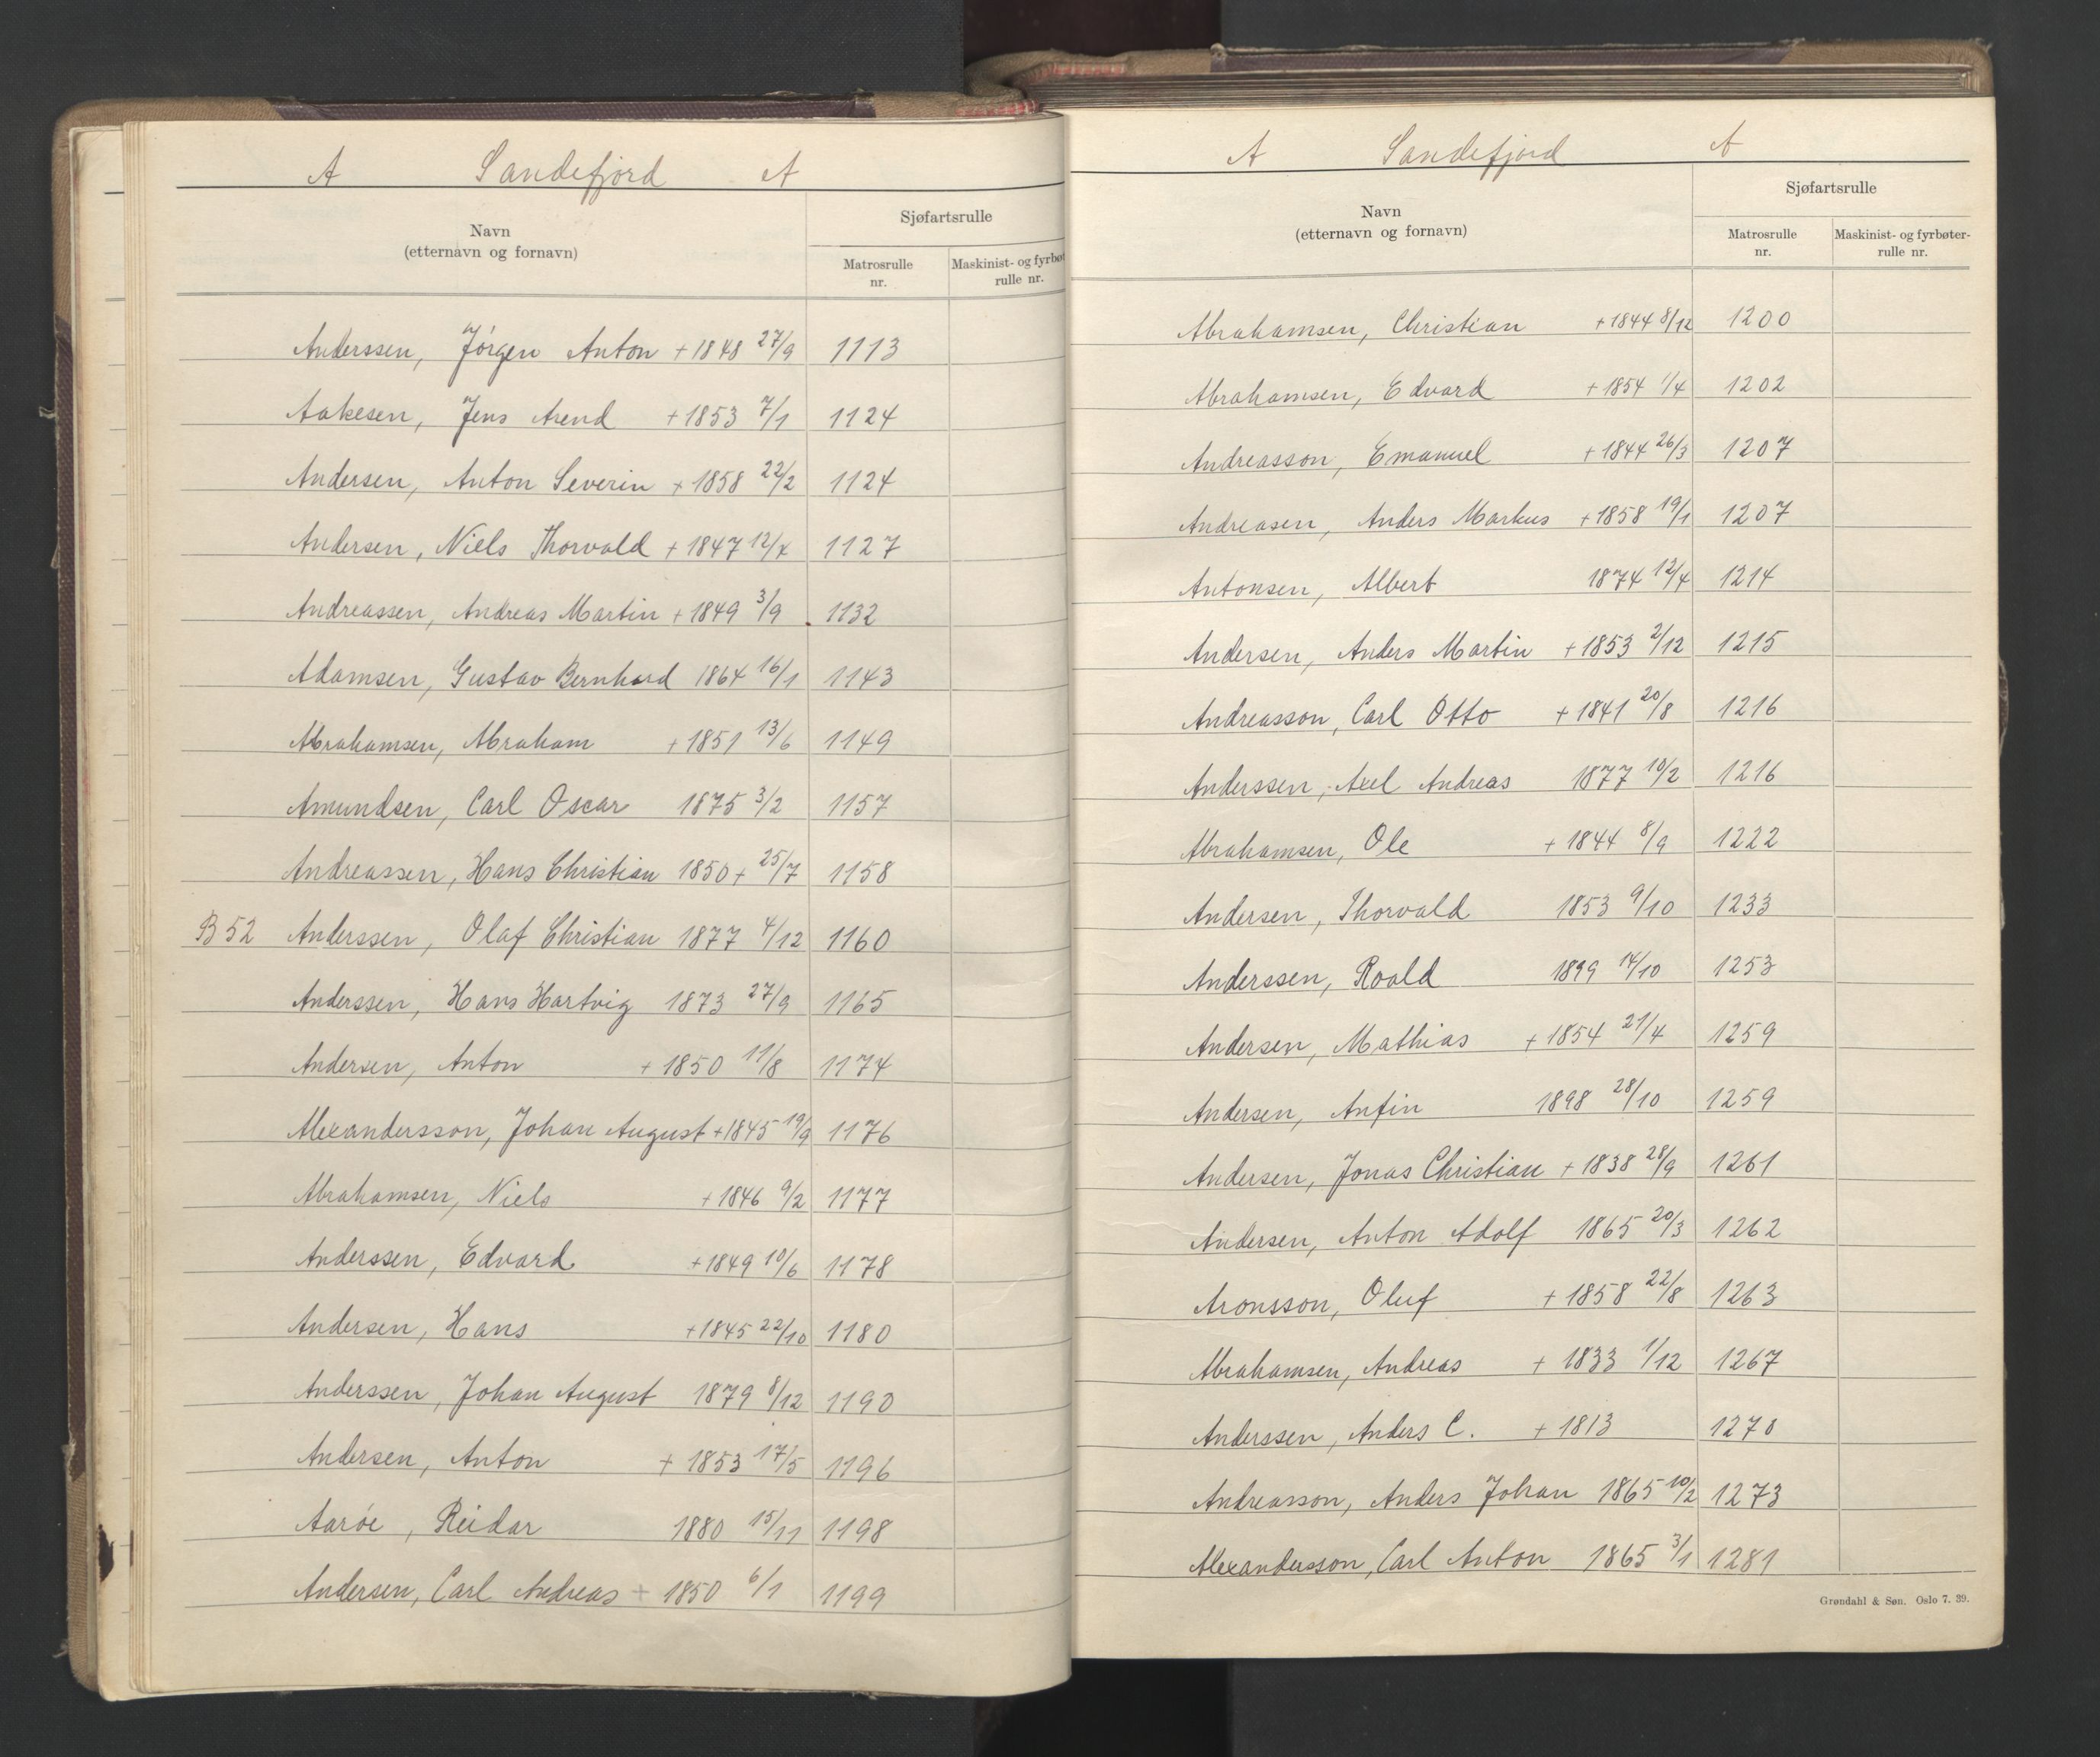 A Sandefjord A
Navn
(etternavn og fornavn)
Sjøfartsrulle
Matrosrulle
nr.
Maskinist- og fyrbøt
rulle nr.
Anderssen, Jörgen Anton +1848 27/9 1113
Aakesen, Jens Arend +1853 7/1 1124
Andersen, Anton Severin +1858 22/2 1124
Andersen, Niels Thorvald +1847 12/4 1127
Andreassen, Andreas Martin +1849 3/9 1132
Adamsen, Gustav Bernhard 1864 16/1 1143
Abrahamsen, Abraham +1851 13/6 1149
Amundsen, Carl Oscar 1875 3/2 1157
Andreassen, Hans Christian 1850+ 25/7 1158
B 52 Anderssen, Olaf Christian 1877 4/12 1160
Anderssen, Hans Hartvig 1873 27/9 1165
Andersen, Anton +1850 11/8 1174
Alexandersson, Johan August +1845 19/9 1176
Abrahamsen, Niels +1846 9/2 1177
Anderssen, Edvard +1849 10/6 1178
Andersen, Hans +1845 22/10 1180
Anderssen, Johan August 1879 8/12 1190
Andersen, Anton +1853 17/5 1196
Aaröe, Reidar 1880 15/11 1198
Andersen, Carl Andreas + 1850 6/1 1199
A Sandefjord A
Navn
(etternavn og fornavn)
Sjøfartsrulle
Matrosrulle
nr.
Maskinist- og fyrbøter-
rulle nr.
Abrahamsen, Christian +1844 8/12 1200
Abrahamsen, Edvard +1854 1/4 1202
Andreasson, Emanuel +1844 26/3 1207
Andreasen, Anders Markus +1858 19/1 1207
Antonsen, Albert 1874 12/4 1214
Andersen, Anders Martin +1853 2/12 1215
Andreasson, Carl Otto +1841 20/8 1216
Anderssen, Axel Andreas 1877 10/2 1216
Abrahamsen, Ole +1844 8/9 1222
Andersen, Thorvald 1853 9/10 1233
Anderssen, Roald 1899 14/10 1253
Andersen, Mathias +1854 21/4 1259
Andersen, Anfin 1898 28/10 1259
Andersen, Jonas Christian +1838 28/9 1261
Andersen, Anton Adolf 1865 20/3 1262
Aronsson, Oluf +1858 22/8 1263
Abrahamsen, Andreas +1833 1/12 1267
Anderssen, Anders C. +1813 1270
Andreasson, Anders Johan 1865 10/2 1273
Alexandersson, Carl Anton 1865 3/1 1281
Grøndahl & Søn. Oslo 7. 39.